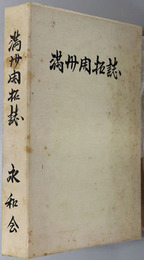 満州開拓誌
満州開拓誌
永和会